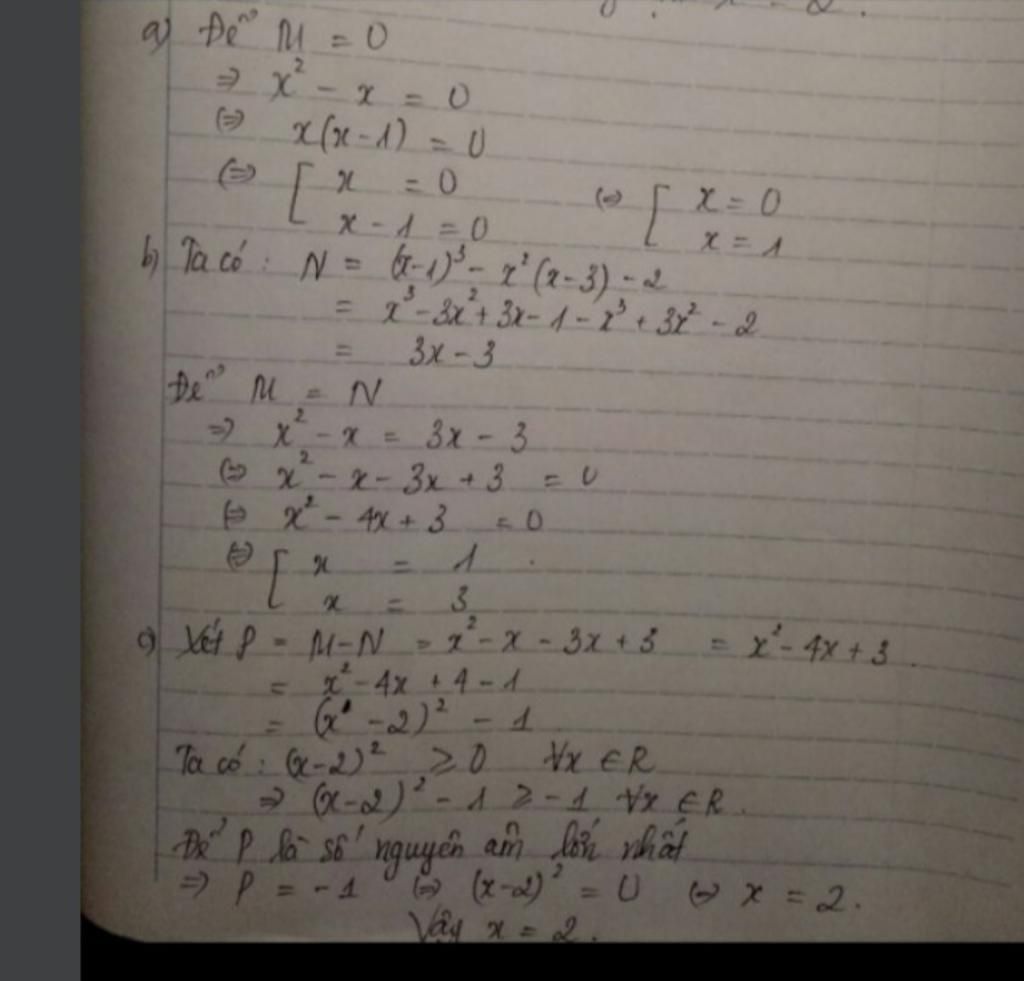 a) Để M = 0
⇒ x² - x = 0
⇔ x(x-1) = 0
⇔ [ x = 0 ⇔ [ x = 0
x - 1 = 0 x = 1
b) Ta có : N = (x-1)³ - x²(x-3) - 2
= x³ - 3x² + 3x - 1 - x³ + 3x² - 2
= 3x - 3
Để M = N
⇒ x² - x = 3x - 3
⇔ x² - x - 3x + 3 = 0
⇔ x² - 4x + 3 = 0
⇔ [ x = 1
x = 3
c) Xét P = M - N = x² - x - 3x + 3 = x² - 4x + 3.
= x² - 4x + 4 - 1
= (x - 2)² - 1
Ta có : (x-2)² ≥ 0 ∀x ∈ R
⇒ (x-2)² - 1 ≥ -1 ∀x ∈ R.
Để P là số nguyên âm lớn nhất
⇒ P = -1 ⇔ (x-2)² = 0 ⇔ x = 2.
Vậy x = 2.